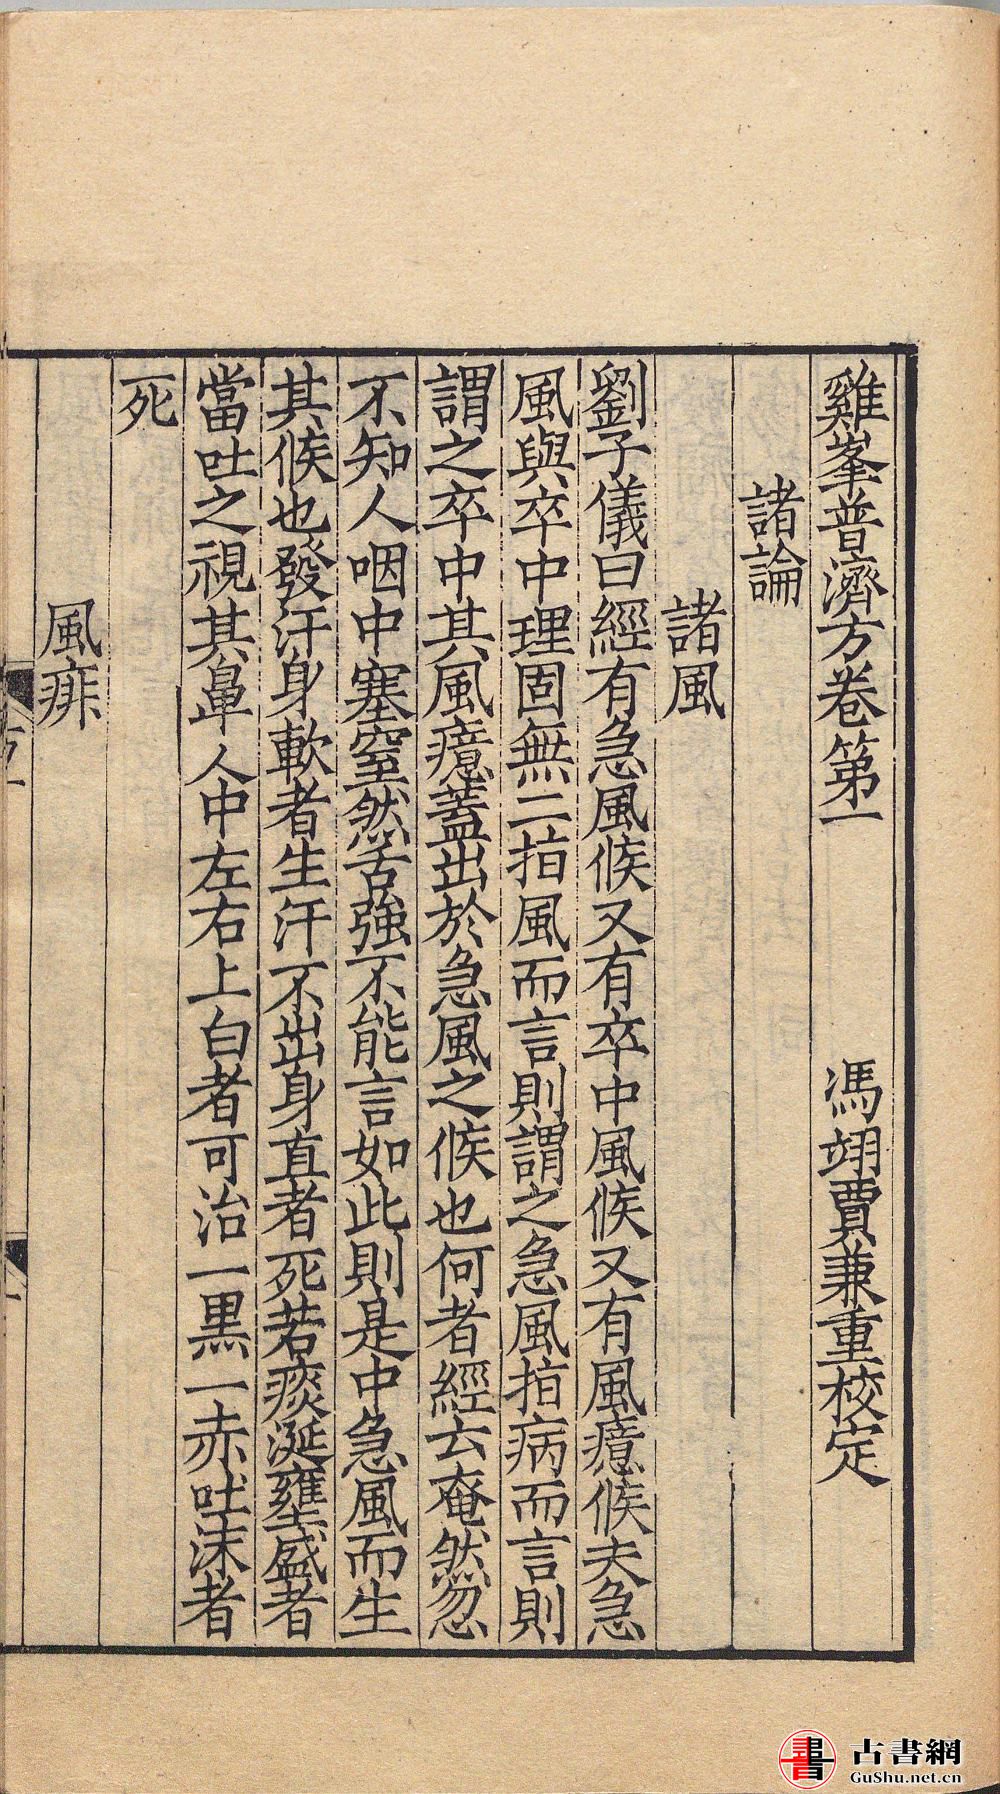 雞峯普濟方卷第一 馮翊賈兼重校定
諸論
諸風
劉子儀曰經有急風候又有卒中風候又有風癔候夫急
風與卒中理固無二指風而言則謂之急風指病而言則
謂之卒中其風癔蓋出於急風之候也何者經云奄然忽
不知人咽中塞窒然舌強不能言如此則是中急風而生
其候也發汗身軟者生汗不出身直者死若痰涎壅盛者
當吐之視其鼻人中左右上白者可治一黑一赤吐沫者
死
風痱
古書網
GuShu.net.cn